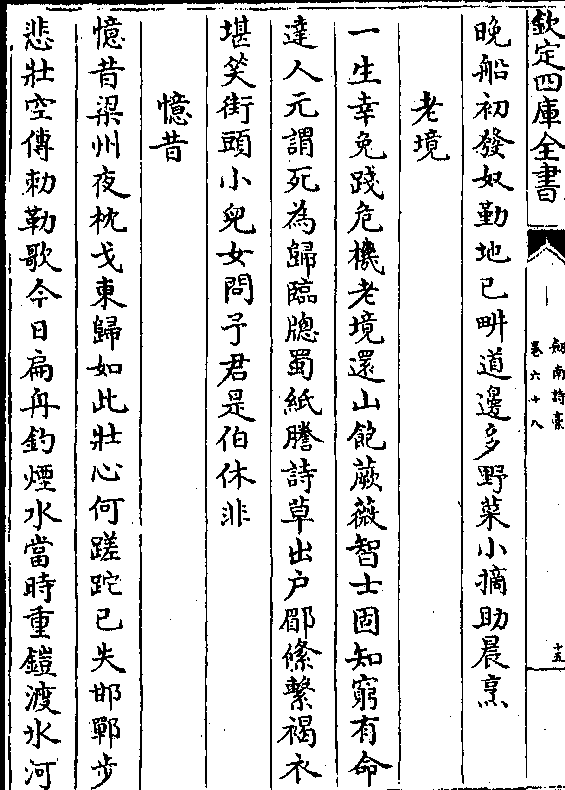 欽定四庫全書
劍南詩稾
卷六十八
十五
晚船初發奴勤地已畊道邊多野菜小摘助晨烹
老境
一生幸免踐危機老境還山飽蕨薇智士固知窮有命
達人元謂死為歸臨牕蜀紙謄詩草出户郿絛繫褐衣
堪笑街頭小兒女問予君是伯休非
憶昔
憶昔梁州夜枕戈東歸如此壯心何蹉跎已失邯鄲步
悲壯空傳勅勒歌今日扁舟釣煙水當時重鎧渡氷河